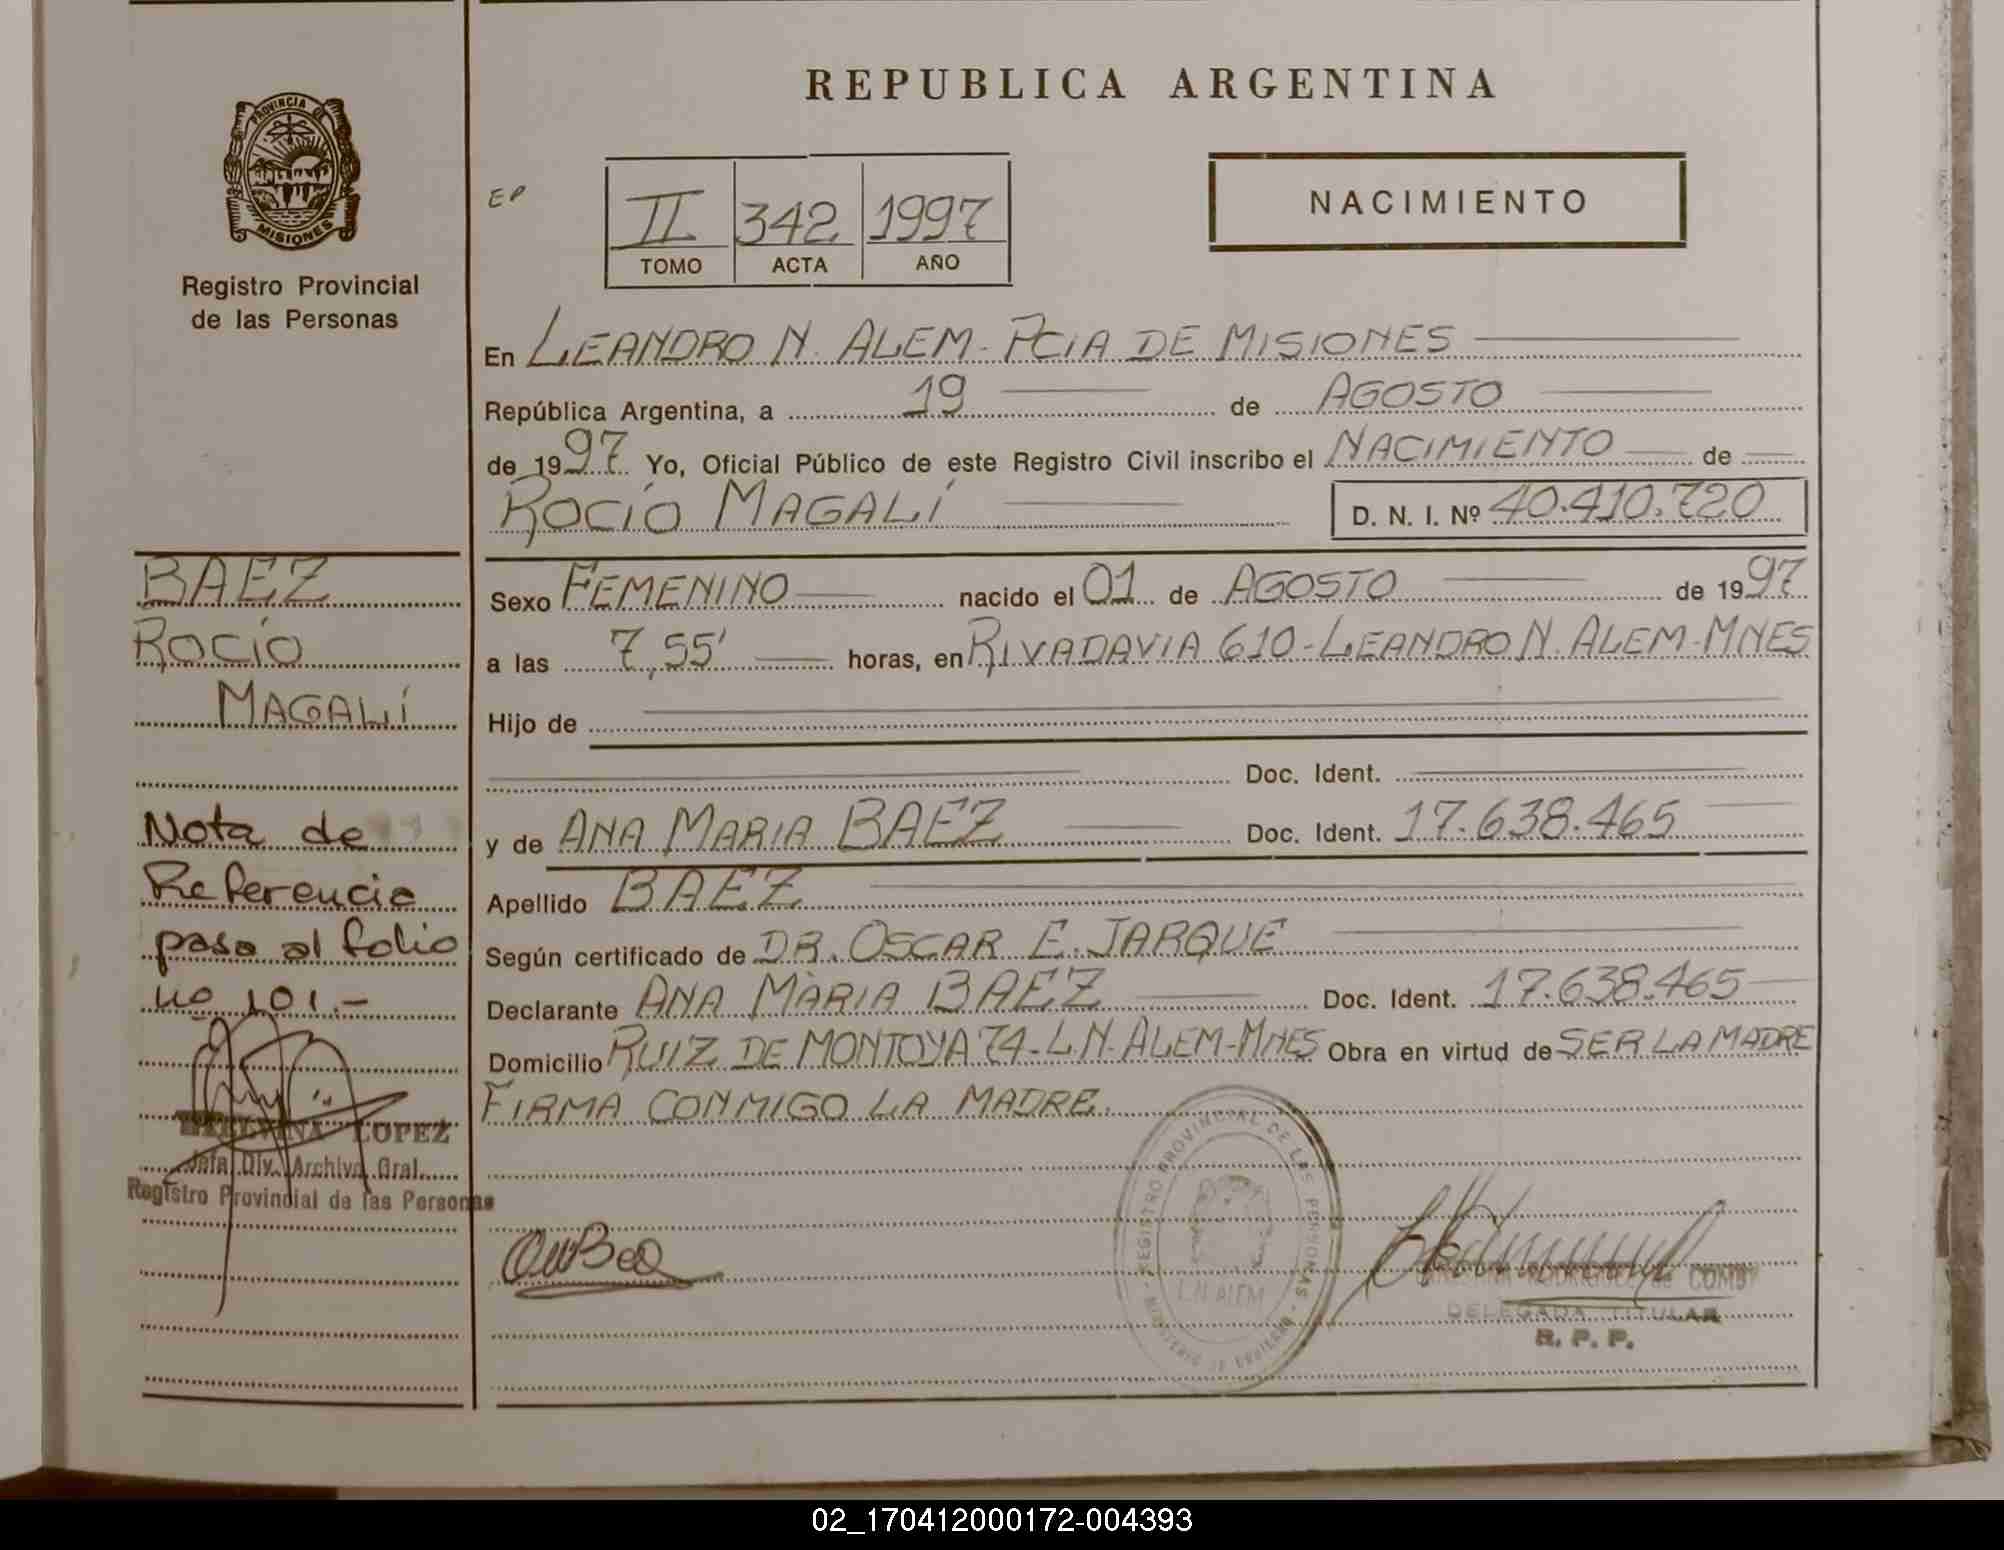 PROVINCIA DE
MISIONES
Registro Provincial
de las Personas
REPUBLICA ARGENTINA
EP
II 342 1997
TOMO ACTA AÑO
NACIMIENTO
En LEANDRO N. ALEM-PCIA DE MISIONES
República Argentina, a 19 de AGOSTO
de 1997 Yo, Oficial Público de este Registro Civil inscribo el NACIMIENTO de
ROCÍO MAGALÍ D. N. I. Nº 40.410.720
Sexo FEMENINO nacido el 01 de AGOSTO de 1997
a las 7,55' horas, en RIVADAVIA 610-LEANDRO N. ALEM-MNES
Hijo de
Doc. Ident.
y de ANA MARIA BAEZ Doc. Ident. 17.638.465
Apellido BAEZ
Según certificado de DR. OSCAR E. JARQUE
Declarante ANA MARIA BAEZ Doc. Ident. 17.638.465
Domicilio RUIZ DE MONTOYA 74-L.N. ALEM-MNES Obra en virtud de SER LA MADRE
FIRMA CONMIGO LA MADRE.
BAEZ
ROCÍO
MAGALÍ
Nota de
Referencia
pasa al folio
nº 101.-
LOPEZ
Jefa Div. Archivo Gral.
Registro Provincial de las Personas
REGISTRO PROVINCIAL DE LAS PERSONAS
L.N. ALEM
MINISTERIO DE GOBIERNO
DELEGADA TITULAR
R. P. P.
02_170412000172-004393